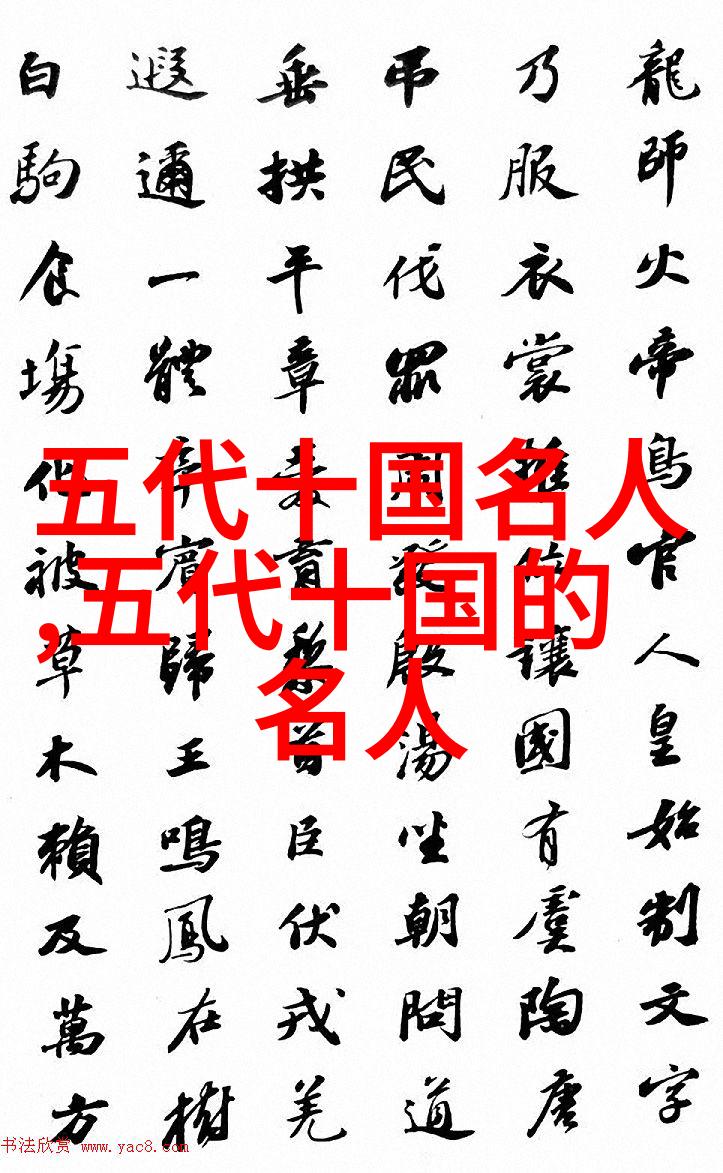 龍師火帝鳥官人皇始制文字
乃服衣裳推位讓國有虞陶唐
弔民伐罪周發殷湯坐朝問道
垂拱平章愛育黎首臣伏戎羌
遐邇一體率賓歸王鳴鳳在樹
白駒食場化被草木賴及萬方
五代十国名人
,五代十国的
名人
书法欣赏 www.yac8.com